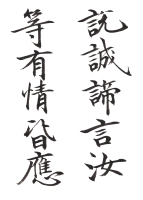 説誠諦言汝
等有情皆應